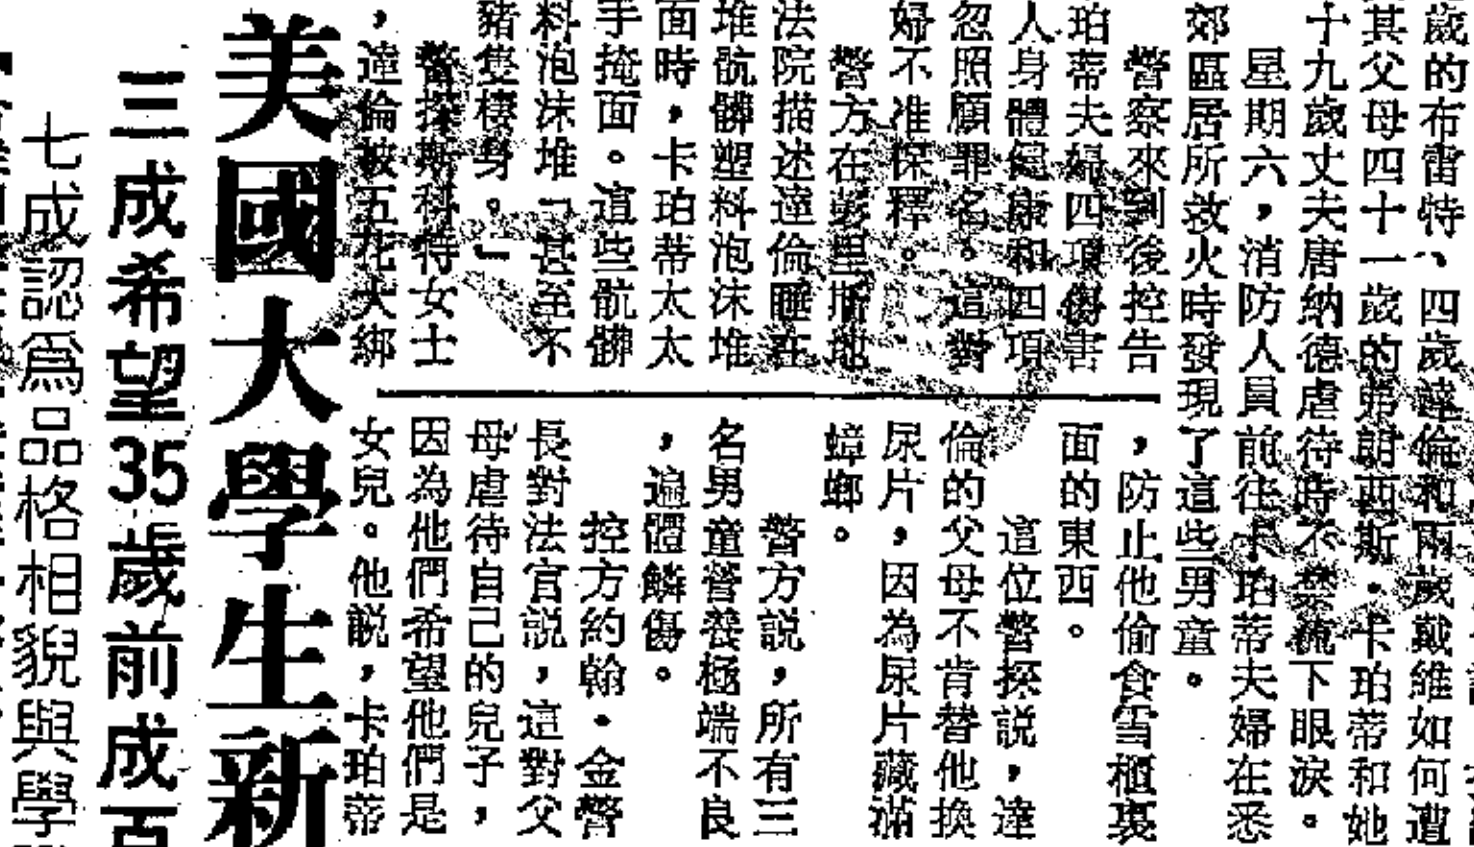 歲的布雷特、四歲達倫和兩歲戴維如何遭
其父母四十一歲的弗朗西斯·卡珀蒂和她
十九歲丈夫唐納德虐待時不禁流下眼淚。
星期六，消防人員前往卡珀蒂夫婦在悉
郊區居所救火時發現了這些男童。
警察來到後控告
珀蒂夫婦四項傷害
人身體健康和四項
忽照顧罪名。這對
婦不准保釋。
警方在彭里斯地
法院描述達倫睡在
堆骯髒塑料泡沫堆
面時，卡珀蒂太太
手掩面。這些骯髒
料泡沫堆「甚至不
豬隻棲身。」
警探斯科特女士
，達倫被五花大綁
，防止他偷食雪櫃裏
面的東西。
這位警探説，達
倫的父母不肯替他換
尿片，因為尿片藏滿
蟑螂。
警方説，所有三
名男童營養極端不良
，遍體鱗傷。
控方約翰·金警
長對法官説，這對父
母虐待自己的兒子，
因為他們希望他們是
女兒。他説，卡珀蒂
美國大學生新
三成希望35歲前成百
七成認爲品格相貌與學